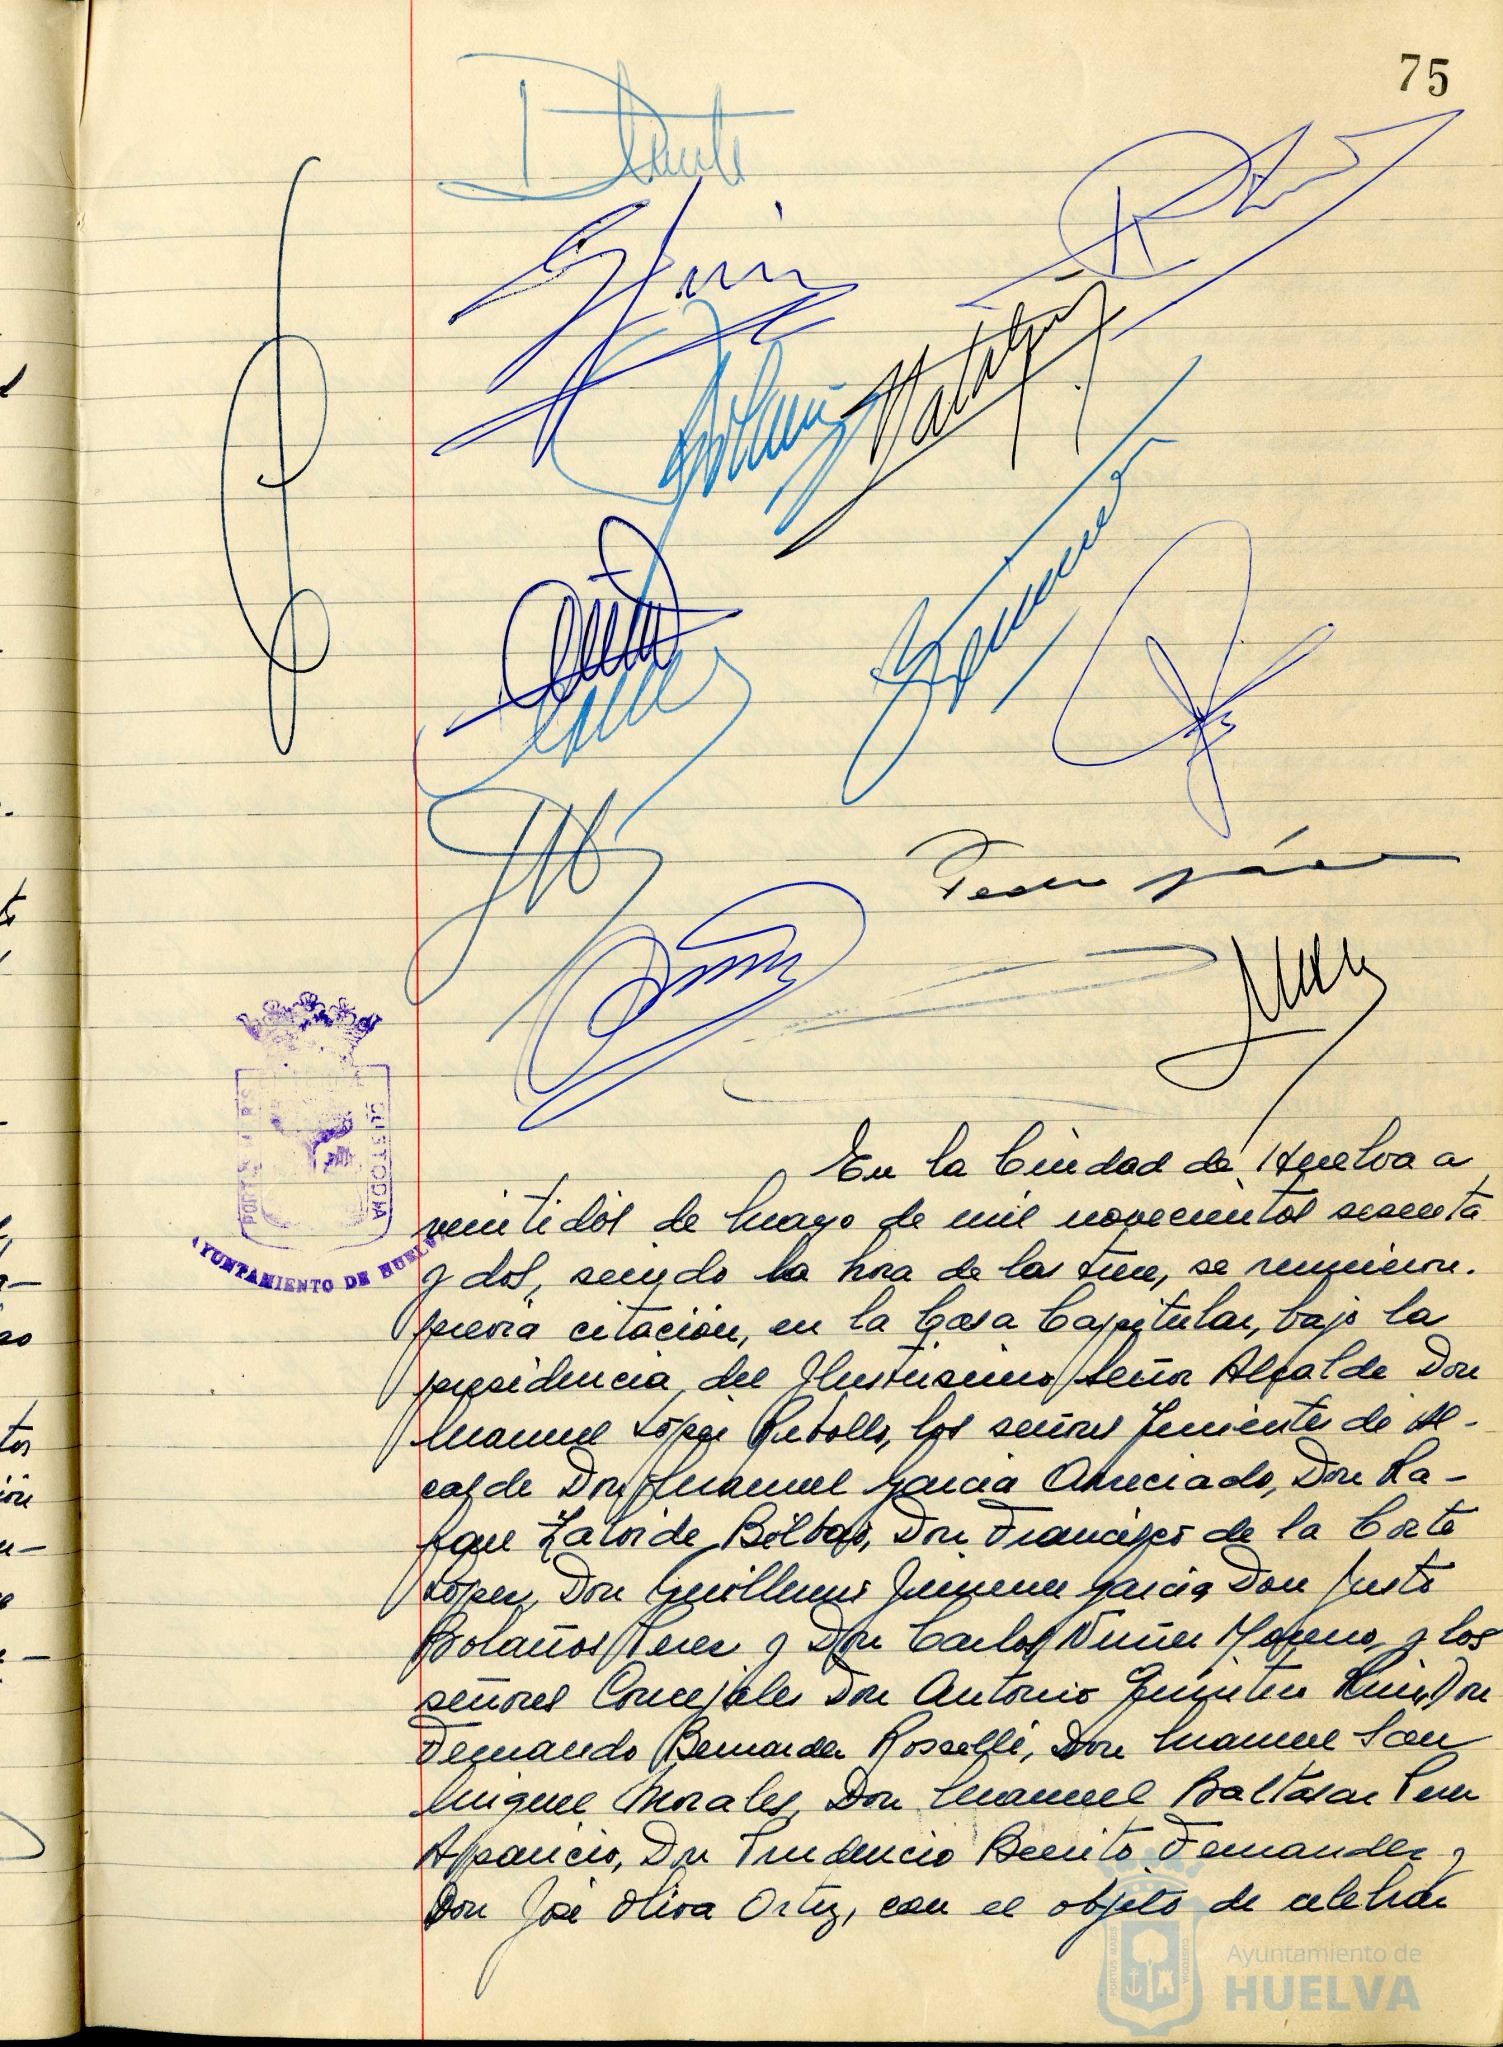 75
Pedro
PORTUS MARIS
CUSTODIA
AYUNTAMIENTO DE HUELVA
En la Ciudad de Huelva a
veintidós de Mayo de mil novecientos sesenta
y dos, siendo la hora de las trece, se reunieron.
previa citación, en la Casa Capitular, bajo la
presidencia del Ilustrísimo Señor Alcalde Don
Manuel López Rebollo, los señores Tenientes de Al-
calde Don Manuel Garcia Anreciado, Don Ra-
fael Zalvide Bilbao, Don Francisco de la Corte
López, Don Guillermo Jimenez Garcia, Don Justo
Bolaños Perez y Don Carlos Nuñez Moreno, y los
señores Concejales Don Antonio Quintero Ruiz, Don
Fernando Bernardez Rosselli, Don Manuel San
Miguel Morales, Don Manuel Baltasar Perez
Aparicio, Don Prudencio Benito Fernandez y
Don José Oliva Ortiz, con el objeto de celebrar
Ayuntamiento de
HUELVA